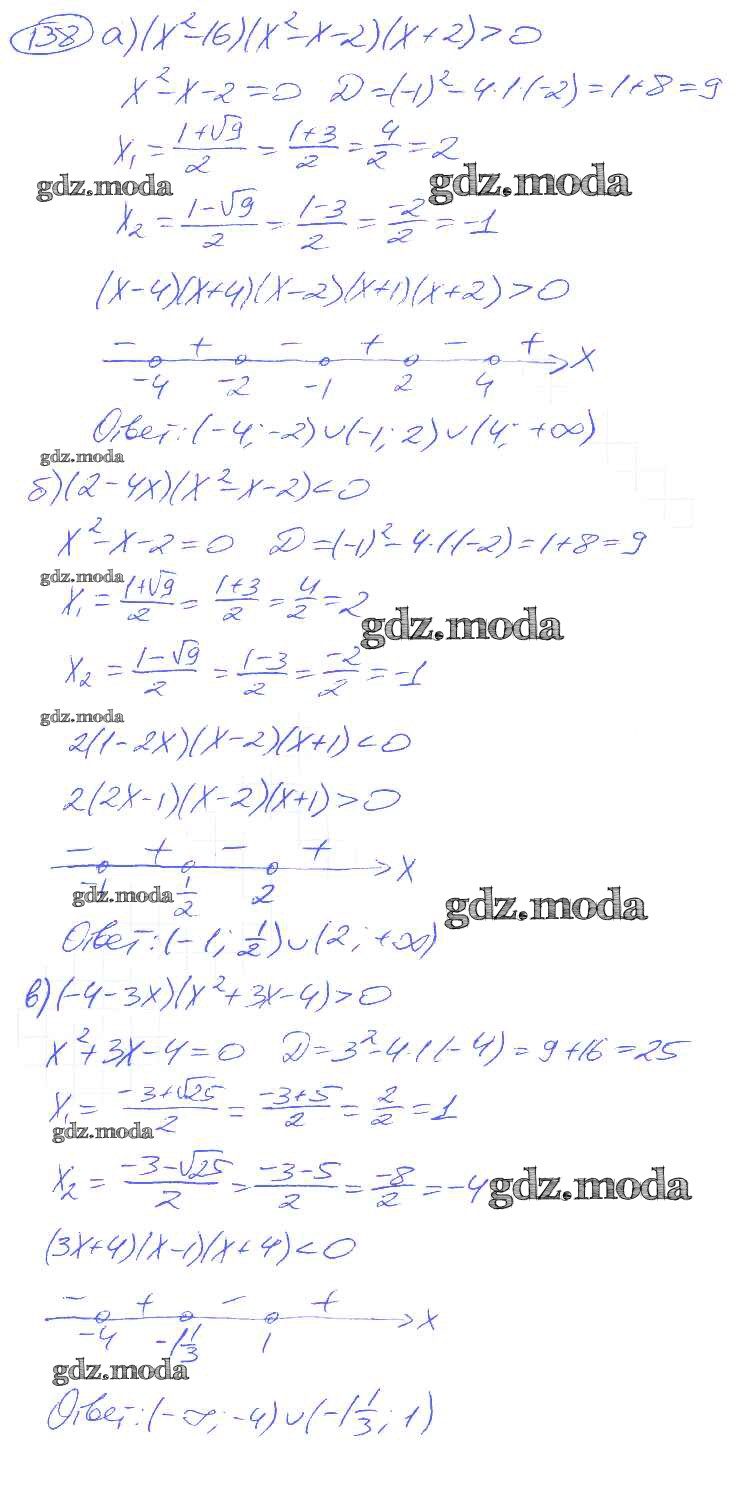 138 а) (x²-16)(x²-x-2)(x+2)>0
x²-x-2=0 D=(-1)²-4·1·(-2)=1+8=9
x₁=(1+√9)/2=(1+3)/2=4/2=2
gdz.moda gdz.moda
x₂=(1-√9)/2=(1-3)/2=-2/2=-1
(x-4)(x+4)(x-2)(x+1)(x+2)>0
- + - + - +
-4 -2 -1 2 4 x
Ответ: (-4; -2)∪(-1; 2)∪(4; +∞)
gdz.moda
б) (2-4x)(x²-x-2)<0
x²-x-2=0 D=(-1)²-4·1·(-2)=1+8=9
gdz.moda
x₁=(1+√9)/2=(1+3)/2=4/2=2
gdz.moda
x₂=(1-√9)/2=(1-3)/2=-2/2=-1
gdz.moda
2(1-2x)(x-2)(x+1)<0
2(2x-1)(x-2)(x+1)>0
- + - +
-1 1/2 2 x
gdz.moda gdz.moda
Ответ: (-1; 1/2)∪(2; +∞)
в) (-4-3x)(x²+3x-4)>0
x²+3x-4=0 D=3²-4·1·(-4)=9+16=25
x₁=(-3+√25)/2=(-3+5)/2=2/2=1
gdz.moda
x₂=(-3-√25)/2=(-3-5)/2=-8/2=-4
gdz.moda
(3x+4)(x-1)(x+4)<0
- + - +
-4 -1 1/3 1 x
gdz.moda
Ответ: (-∞; -4)∪(-1 1/3; 1)